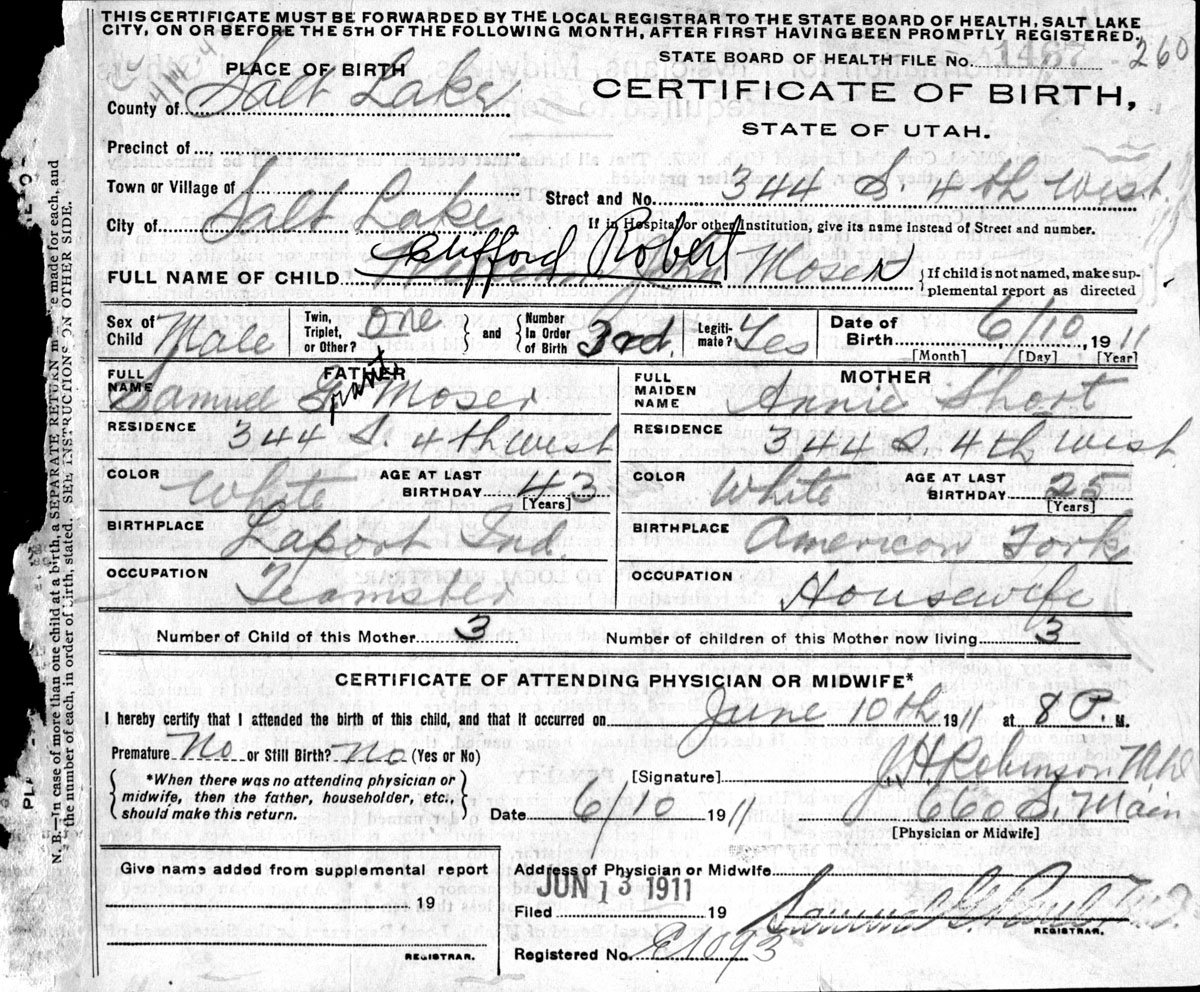 THIS CERTIFICATE MUST BE FORWARDED BY THE LOCAL REGISTRAR TO THE STATE BOARD OF HEALTH, SALT LAKE
CITY, ON OR BEFORE THE 5TH OF THE FOLLOWING MONTH, AFTER FIRST HAVING BEEN PROMPTLY REGISTERED.
STATE BOARD OF HEALTH FILE No. 1467 - 260
PLACE OF BIRTH
CERTIFICATE OF BIRTH,
County of Salt Lake
STATE OF UTAH.
Precinct of
Town or Village of
Street and No. 344 S. 4th West.
City of Salt Lake
If in Hospital or other Institution, give its name instead of Street and number.
Clifford Robert
FULL NAME OF CHILD William John Moser
{If child is not named, make sup-
plemental report as directed
Sex of Child Male Twin, Triplet, or Other? One } and { Number In Order of Birth 3rd. Legiti-mate? Yes Date of Birth 6/10, 1911
[Month] [Day] [Year]
FATHER MOTHER
FULL NAME Samuel Grant Moser FULL MAIDEN NAME Annie Short
RESIDENCE 344 S. 4th West RESIDENCE 344 S 4th West
COLOR White AGE AT LAST BIRTHDAY 43 [Years] COLOR White AGE AT LAST BIRTHDAY 25 [Years]
BIRTHPLACE Laport Ind. BIRTHPLACE American Fork
OCCUPATION Teamster OCCUPATION Housewife
Number of Child of this Mother 3 Number of children of this Mother now living 3
CERTIFICATE OF ATTENDING PHYSICIAN OR MIDWIFE*
I hereby certify that I attended the birth of this child, and that it occurred on June 10th 1911 at 8 P. M.
Premature No or Still Birth? No (Yes or No)
{ *When there was no attending physician or
midwife, then the father, householder, etc.,
should make this return. }
[Signature] J H Robinson MD
Date 6/10 1911 660 S. Main
[Physician or Midwife]
Give name added from supplemental report
19
REGISTRAR.
Address of Physician or Midwife
Filed JUN 13 1911 19
REGISTRAR.
Registered No. E1093
N. B.—In case of more than one child at a birth, a SEPARATE RETURN must be made for each, and
the number of each, in order of birth, stated. SEE INSTRUCTIONS ON OTHER SIDE.